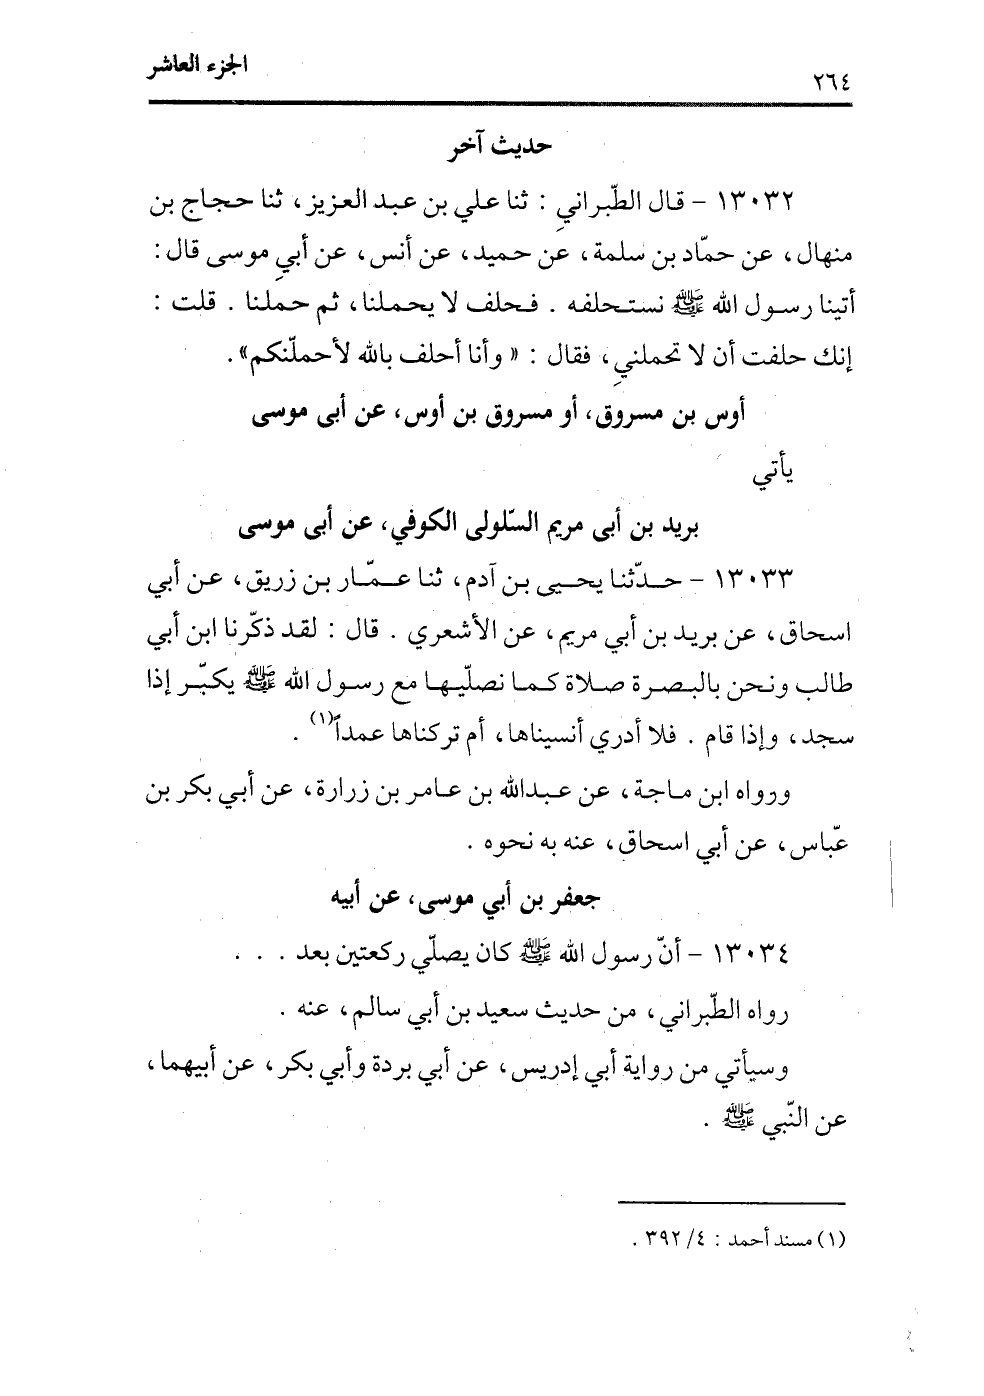 الجزء العاشر
٢٦٤
حديث آخر
١٣٠٣٢ - قال الطّبراني : ثنا علي بن عبد العزيز، ثنا حجاج بن
منهال، عن حمّاد بن سلمة، عن حميد، عن أنس، عن أبي موسى قال :
أتينا رسول الله ﷺ نستحلفه . فحلف لا يحملنا، ثم حملنا . قلت :
إنك حلفت أن لا تحملني، فقال : « وأنا أحلف بالله لأحملّنكم» .
أوس بن مسروق، أو مسروق بن أوس، عن أبى موسى
يأتي
بريد بن أبى مريم السّلولى الكوفي، عن أبى موسى
١٣٠٣٣ - حدّثنا يحيى بن آدم، ثنا عمّار بن زريق، عن أبي
اسحاق، عن بريد بن أبي مريم، عن الأشعري . قال : لقد ذكّرنا ابن أبي
طالب ونحن بالبصرة صلاة كما نصلّيها مع رسول الله ﷺ يكبّر إذا
سجد، وإذا قام . فلا أدري أنسيناها، أم تركناها عمداً(١) .
ورواه ابن ماجة، عن عبدالله بن عامر بن زرارة، عن أبي بكر بن
عبّاس، عن أبي اسحاق، عنه به نحوه .
جعفر بن أبي موسى، عن أبيه
١٣٠٣٤ - أنّ رسول الله ﷺ كان يصلّي ركعتين بعد . . .
رواه الطّبراني، من حديث سعيد بن أبي سالم، عنه .
وسيأتي من رواية أبي إدريس، عن أبي بردة وأبي بكر، عن أبيهما،
عن النّبي ﷺ .
(١) مسند أحمد : ٤/ ٣٩٢ .